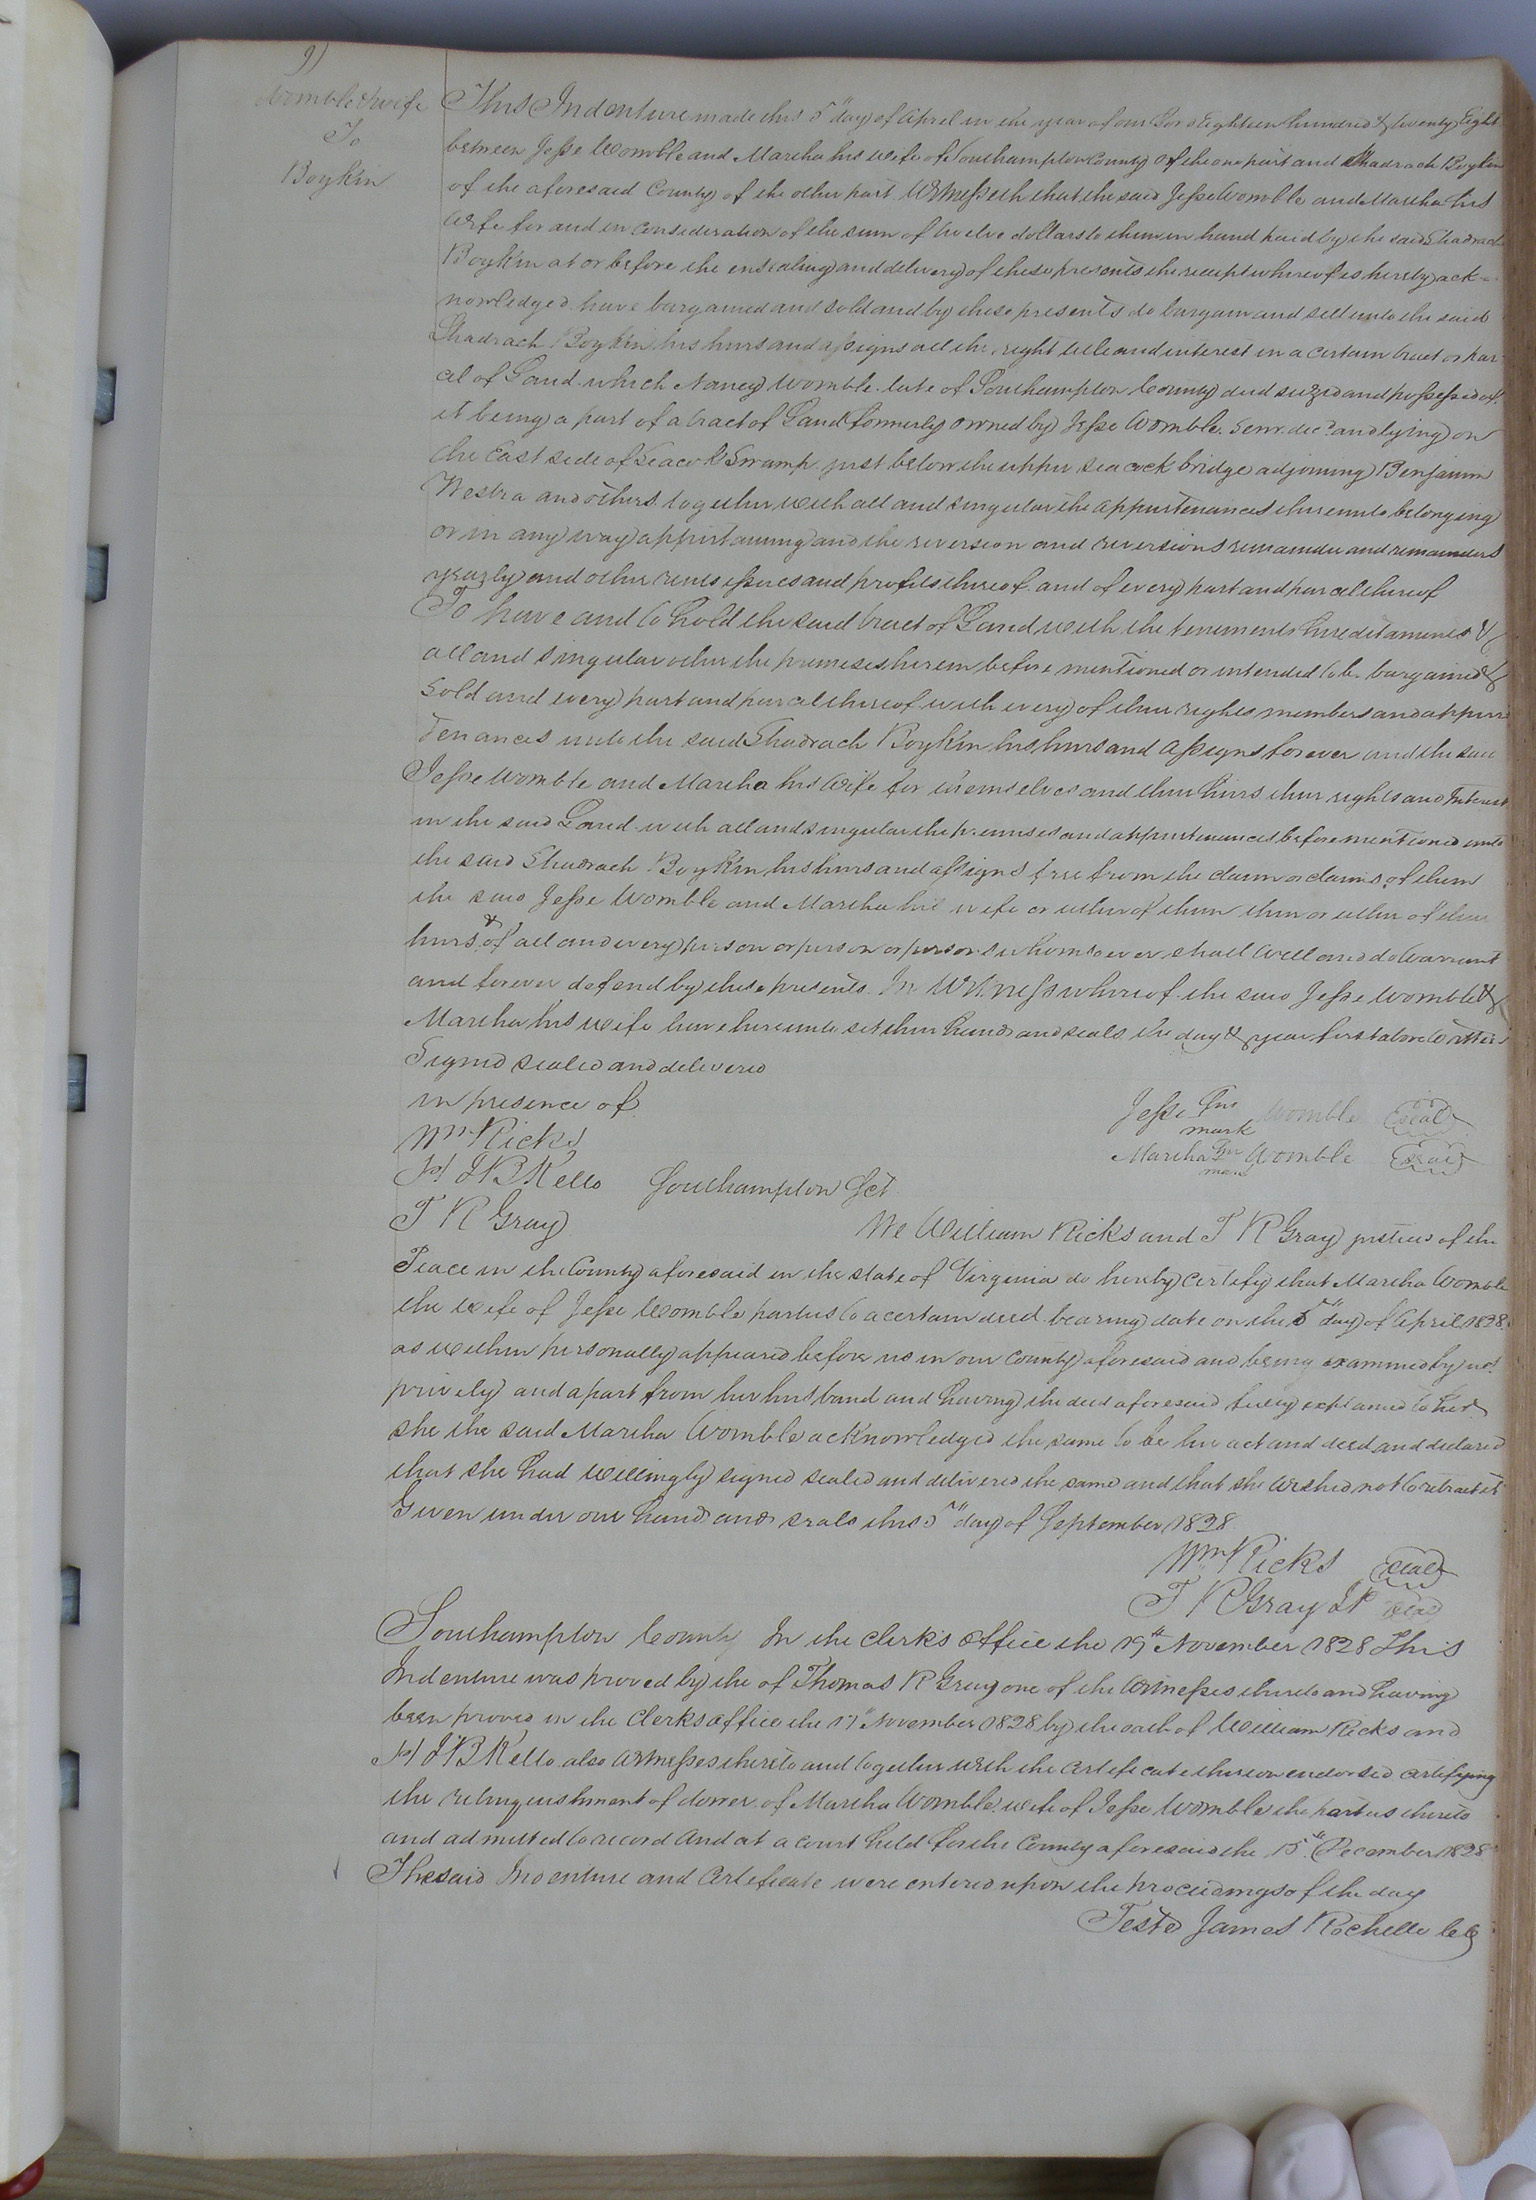 9)
Womble & wife
To
Boykin
This Indenture made this 5" day of April in the year of our Lord Eighteen hundred & twenty Eight
between Jesse Womble and Martha his wife of Southampton County of the one part and Shadrach Boykin
of the aforesaid County of the other part Witnesseth that the said Jesse Womble and Martha his
wife for and in consideration of the sum of twelve dollars to them in hand paid by the said Shadrach
Boykin at or before the ensealing and delivery of these presents the receipt whereof is hereby ack=
nowledged have bargained and sold and by these presents do bargain and sell unto the said
Shadrach Boykin his heirs and assigns all the right title and interest in a certain tract or par
cel of Land which Nancy Womble late of Southampton County died seized and possessed of.
it being a part of a tract of Land formerly owned by Jesse Womble Senr. decd. and lying on
the East side of Seacock Swamp just below the upper seacock bridge adjoining Benjamin
Westra and others together with all and singular the appurtenances thereunto belonging
or in any way appertaining and the reversion and reversions remainder and remainders
yearly and other rents issues and profits thereof and of every part and parcel thereof
To have and to hold the said tract of Land with the tenements hereditaments &
all and singular other the premises herein before mentioned or intended to be bargained &
Sold and every part and parcel thereof with every of their rights members and appur
tenances unto the said Shadrach Boykin his heirs and assigns forever and the said
Jesse Womble and Martha his Wife for themselves and their heirs their rights and Interest
in the said Land with all and singular the premises and appurtenances before mentioned unto
the said Shadrach Boykin his heirs and assigns free from the claim or claims of them
the said Jesse Womble and Martha his wife or either of them their or either of their
heirs & of all and every person or person or persons whomsoever shall will and do warrant
and forever defend by these presents. In Witness whereof the said Jesse Womble &
Martha his wife have hereunto set their hands and seals the day & year first above written
Signed sealed and delivered
in presence of
Jesse his mark Womble (seal)
Wm Ricks
Martha her mark Womble (seal)
H J B Kello Southampton Sct
T R Gray
We William Ricks and T R Gray justices of the
Peace in the County aforesaid in the state of Virginia do hereby certify that Martha Womble
the wife of Jesse Womble parties to a certain deed bearing date on the 5" day of April 1828.
as within personally appeared before us in our County aforesaid and being examined by us
privily and apart from her husband and having the deed aforesaid fully explained to her
she the said Martha Womble acknowledged the same to be her act and deed and declared
that she had willingly signed sealed and delivered the same and that she wished not to retract it
Given under our hands and seals this 5" day of September 1828
Wm Ricks (seal)
T R Gray JP (seal)
Southampton County In the clerk's office the 19th November 1828 This
Indenture was proved by the of Thomas R Gray one of the Witnesses thereto and having
been proved in the Clerks office the 17" November 1828 by the oath of William Ricks and
H J B Kello also Witnesses thereto and together with the certificate thereon endorsed certifying
the relinquishment of dower of Martha Womble wife of Jesse Womble the parties thereto
and admitted to record And at a court held for the County aforesaid the 15th December 1828
The said Indenture and Certificate were entered upon the proceedings of the day
Teste James Rochelle CC